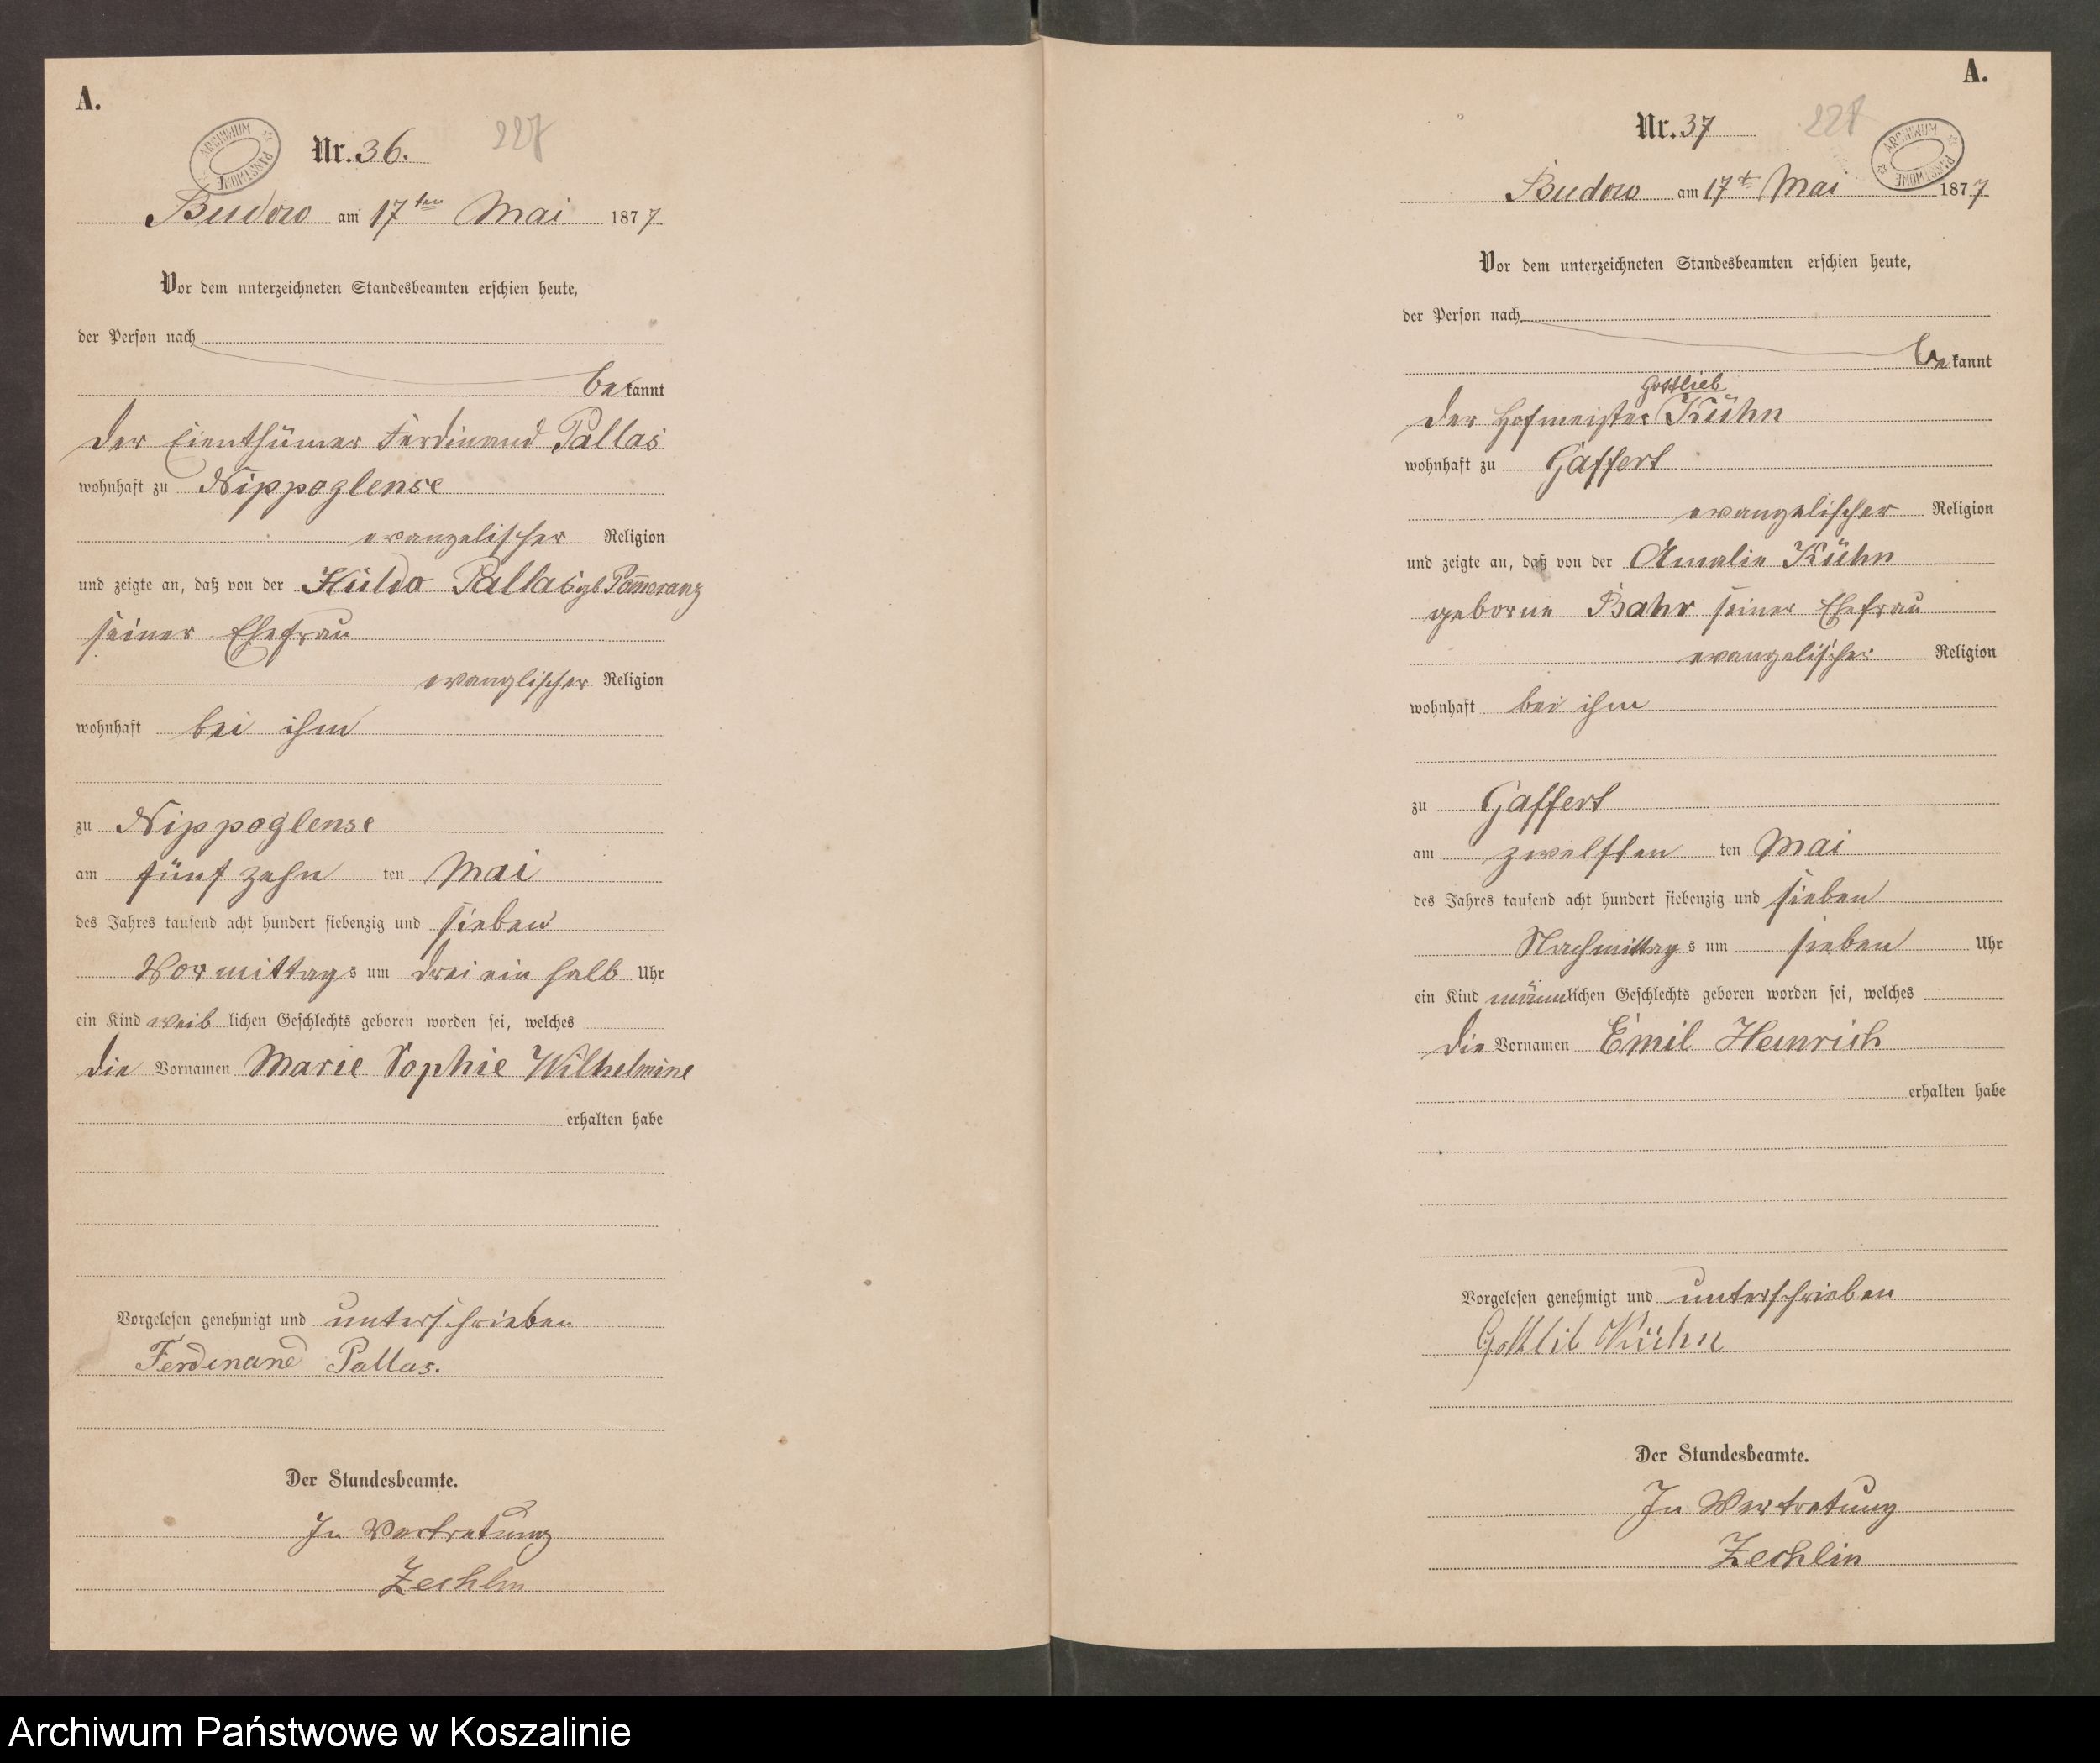 A.
ARCHIWUM PAŃSTWOWE
Nr. 36. 227
Budow am 17ten Mai 1877
Vor dem unterzeichneten Standesbeamten erschien heute,
der Person nach
bekannt
der Eienthümer Ferdinand Pallas
wohnhaft zu Nippoglense
evangelischer Religion
und zeigte an, daß von der Hulda Pallas gb Pom̄eranz
seiner Ehefrau
evanglischer Religion
wohnhaft bei ihm
zu Nippoglense
am fünfzehn ten Mai
des Jahres tausend acht hundert siebenzig und sieben
Vormittags um drei ein halb Uhr
ein Kind weiblichen Geschlechts geboren worden sei, welches
die Vornamen Marie Sophie Wilhelmine
erhalten habe
Vorgelesen genehmigt und unterschrieben
Ferdinand Pallas.
Der Standesbeamte.
In Vertretung
Zechlin
A.
Nr. 37 228
ARCHIWUM PAŃSTWOWE
Budow am 17t Mai 1877
Vor dem unterzeichneten Standesbeamten erschien heute,
der Person nach
bekannt
Gottlieb
der Hofmeister Kühn
wohnhaft zu Gaffert
evangelischer Religion
und zeigte an, daß von der Amalie Kühn
geborne Bahr seiner Ehefrau
evangelischer Religion
wohnhaft bei ihm
zu Gaffert
am zwölften ten Mai
des Jahres tausend acht hundert siebenzig und sieben
Nachmittags um sieben Uhr
ein Kind männlichen Geschlechts geboren worden sei, welches
die Vornamen Emil Heinrich
erhalten habe
Vorgelesen genehmigt und unterschrieben
Gottlib Kühn
Der Standesbeamte.
In Vertretung
Zechlin
Archiwum Państwowe w Koszalinie